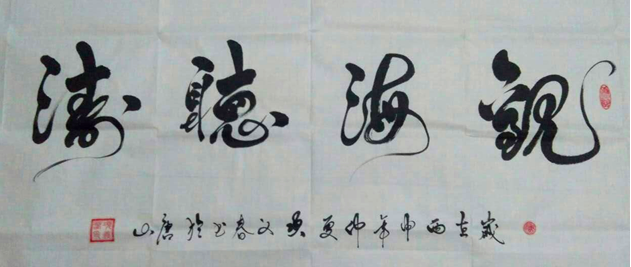 觀海聽濤
歲在丙申年仲夏文春书於唐山